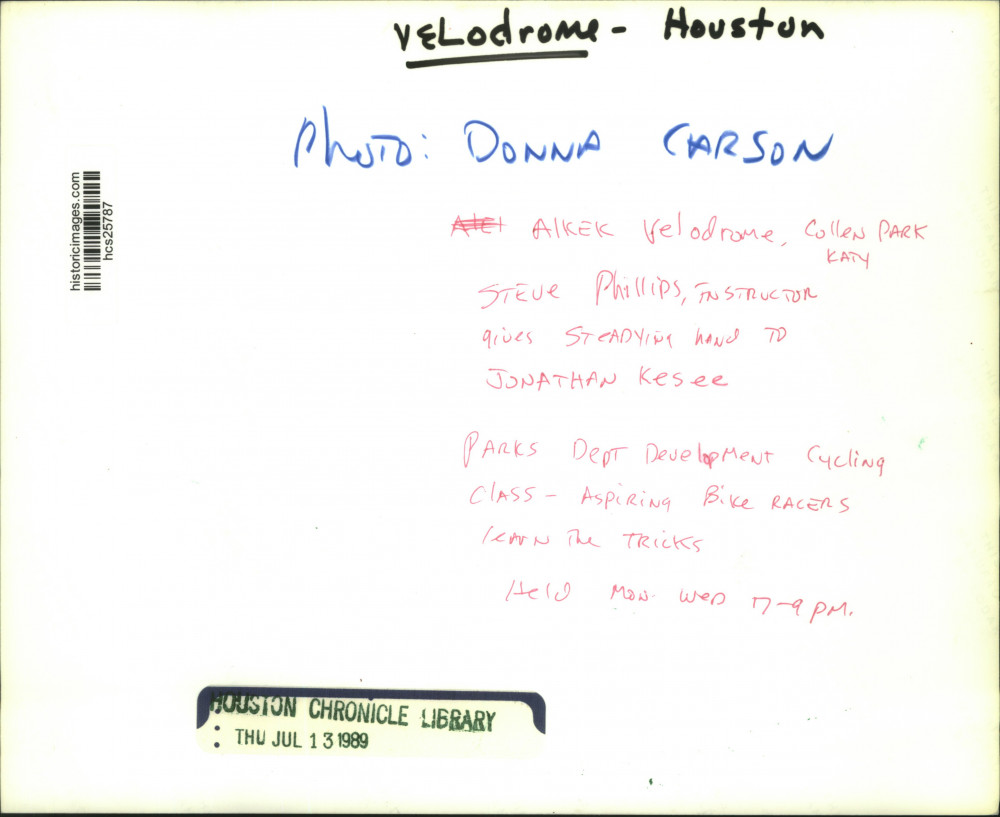 VELodrome - Houston
Photo: DONNA CARSON
historicimages.com
hcs25787
AlKEK Velodrome, Cullen PARK
KATY
STEVE Phillips, INSTRUCTOR
gives STEADYing hand TO
JONATHAN Kesee
PARKS DEPT Development Cycling
CLASS - Aspiring Bike RACERS
learn The TRICKS
Held Mon. WED 7-9 PM.
HOUSTON CHRONICLE LIBRARY
: THU JUL 13 1989